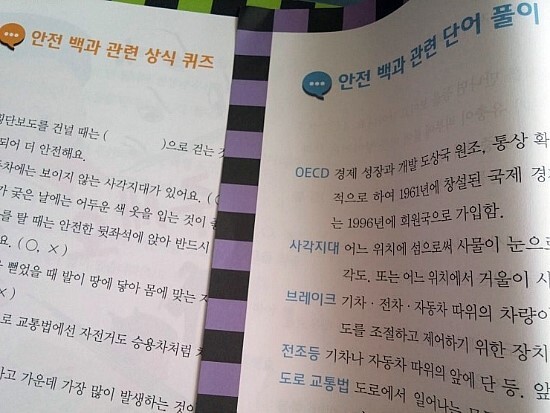 안전 백과 관련 상식 퀴즈
횡단보도를 건널 때는 (            )으로 걷는 것
되어 더 안전해요.
동차에는 보이지 않는 사각지대가 있어요. (
가 궂은 날에는 어두운 색 옷을 입는 것이
를 탈 때는 안전한 뒷좌석에 앉아 반드시
요. (○, ×)
뻗었을 때 발이 땅에 닿아 몸에 맞는
×)
로 교통법에선 자전거도 승용차처럼
사고 가운데 가장 많이 발생하는 것이
안전 백과 관련 단어 풀이
OECD 경제 성장과 개발 도상국 원조, 통상 확
적으로 하여 1961년에 창설된 국제 경
는 1996년에 회원국으로 가입함.
사각지대 어느 위치에 섬으로써 사물이 눈으로
각도. 또는 어느 위치에서 거울이 사
브레이크 기차 · 전차 · 자동차 따위의 차량이
도를 조절하고 제어하기 위한 장치
전조등 기차나 자동차 따위의 앞에 단 등. 앞
도로 교통법 도로에서 일어나는